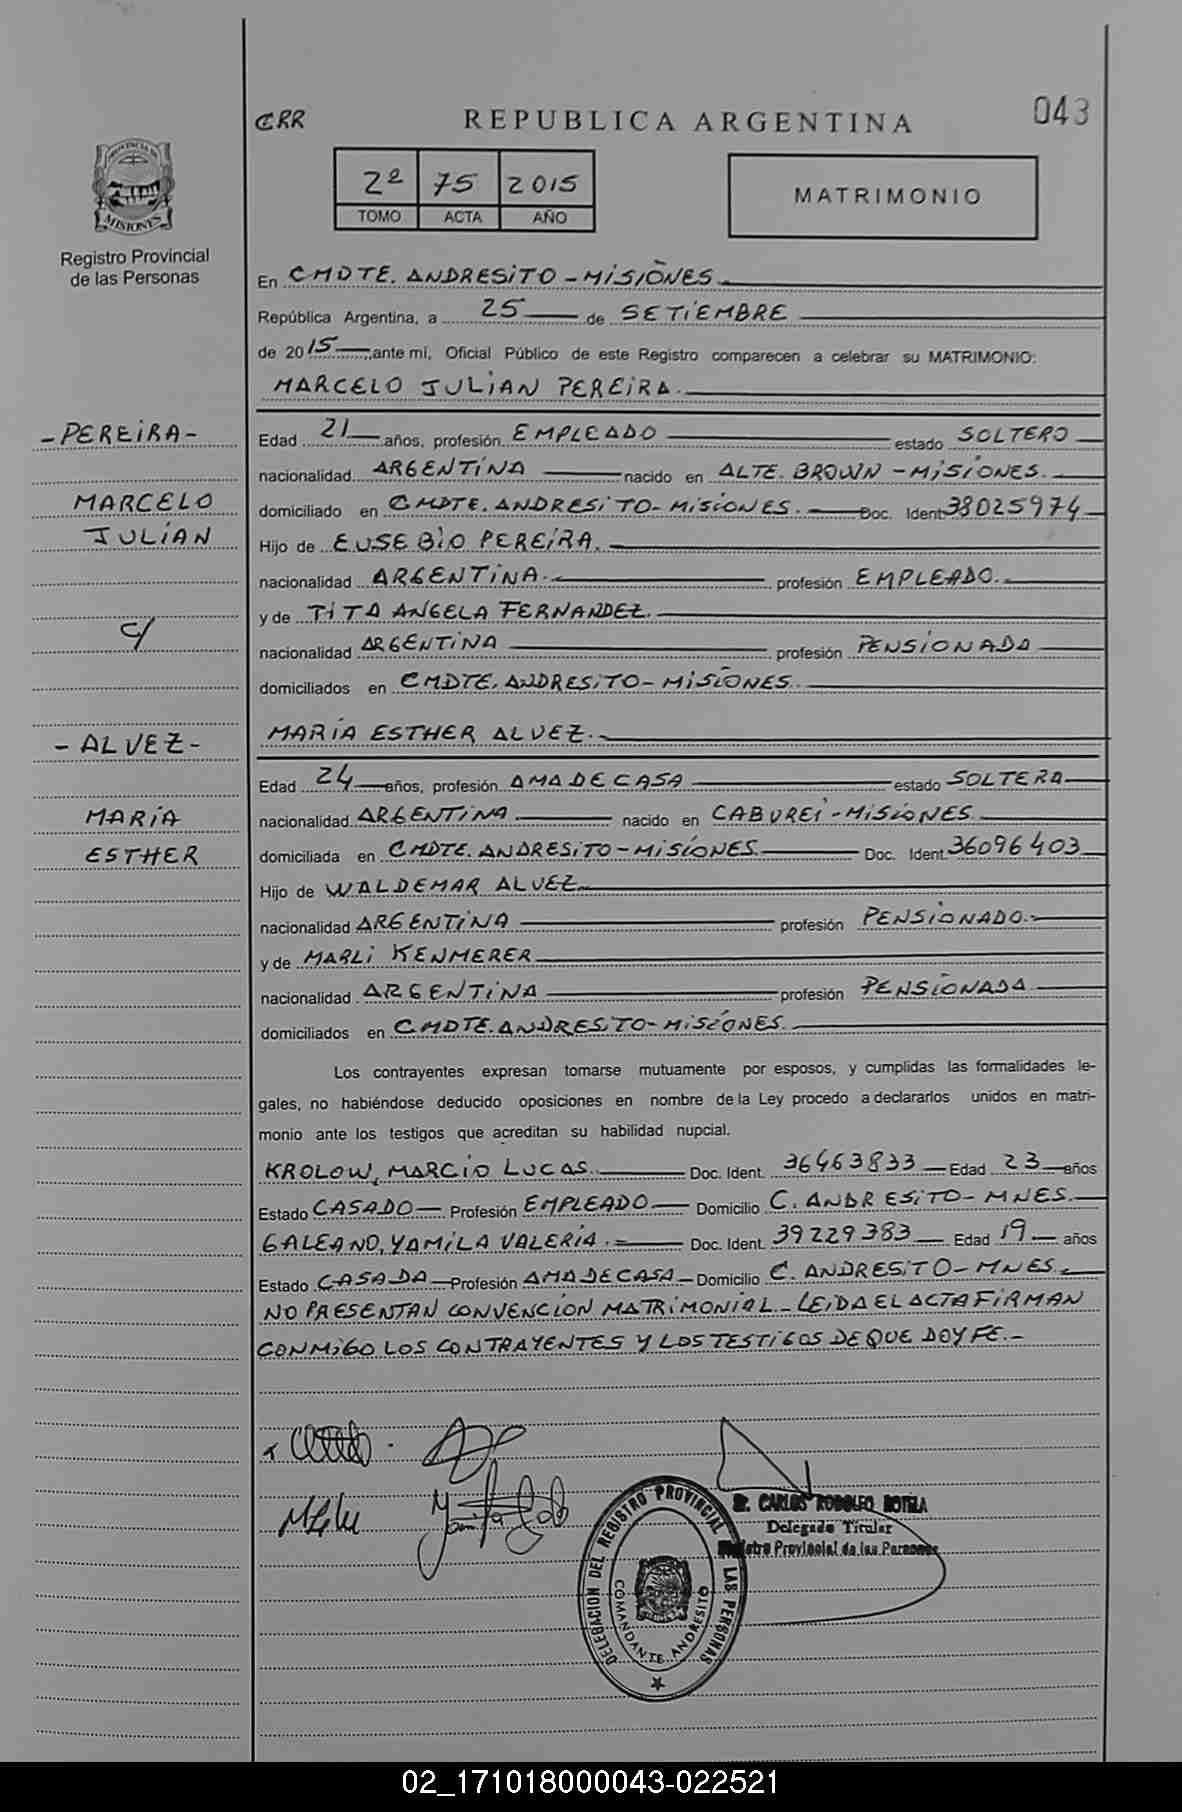 CRR
REPUBLICA ARGENTINA
043
2º 75 2015
TOMO ACTA AÑO
MATRIMONIO
PROVINCIA DE
MISIONES
Registro Provincial
de las Personas
En CMDTE. ANDRESITO - MISIONES.
República Argentina, a 25 de SETIEMBRE
de 2015, ante mí, Oficial Público de este Registro comparecen a celebrar su MATRIMONIO:
MARCELO JULIAN PEREIRA.
- PEREIRA -
MARCELO
JULIAN
C/
- ALVEZ -
MARIA
ESTHER
Edad 21 años, profesión EMPLEADO estado SOLTERO
nacionalidad ARGENTINA nacido en ALTE. BROWN - MISIONES.
domiciliado en CMDTE. ANDRESITO - MISIONES. Doc. Ident. 38025974
Hijo de EUSEBIO PEREIRA.
nacionalidad ARGENTINA. profesión EMPLEADO.
y de TITA ANGELA FERNANDEZ.
nacionalidad ARGENTINA profesión PENSIONADA
domiciliados en CMDTE. ANDRESITO - MISIONES.
MARIA ESTHER ALVEZ.
Edad 24 años, profesión AMA DE CASA estado SOLTERA
nacionalidad ARGENTINA nacido en CABUREI - MISIONES
domiciliada en CMDTE. ANDRESITO - MISIONES Doc. Ident. 36096403
Hijo de WALDEMAR ALVEZ
nacionalidad ARGENTINA profesión PENSIONADO.
y de MARLI KENMERER
nacionalidad ARGENTINA profesión PENSIONADA
domiciliados en CMDTE. ANDRESITO - MISIONES.
Los contrayentes expresan tomarse mutuamente por esposos, y cumplidas las formalidades le-
gales, no habiéndose deducido oposiciones en nombre de la Ley procedo a declararlos unidos en matri-
monio ante los testigos que acreditan su habilidad nupcial.
KROLOW, MARCIO LUCAS. Doc. Ident. 36463833 Edad 23 años
Estado CASADO Profesión EMPLEADO Domicilio C. ANDRESITO - MNES.
GALEANO, YAMILA VALERIA. Doc. Ident. 39229383 Edad 19 años
Estado CASADA Profesión AMA DE CASA Domicilio C. ANDRESITO - MNES.
NO PRESENTAN CONVENCION MATRIMONIAL - LEIDA EL ACTA FIRMAN
CONMIGO LOS CONTRAYENTES Y LOS TESTIGOS DE QUE DOY FE.-
Dr. CARLOS RODOLFO ROTELA
Delegado Titular
Registro Provincial de las Personas
DELEGACION DEL REGISTRO PROVINCIAL DE LAS PERSONAS
COMANDANTE ANDRESITO
02_171018000043-022521